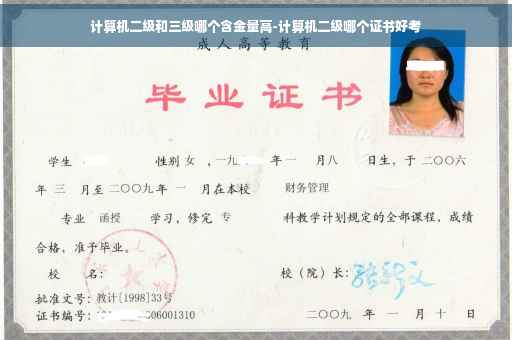 计算机二级和三级哪个含金量高-计算机二级哪个证书好考
成人高等教育
毕业证书
学生 性别 女 ，一九 年一 月八 日生，于二〇〇六
年 三 月至二〇〇九年 一 月在本校 财务管理
专业 函授 学习，修完 专 科教学计划规定的全部课程，成绩
合格，准予毕业。
校 名： 校（院）长：
批准文号：教计[1998]33号
证书编号： 06001310 二〇〇九 年 一 月 十 日